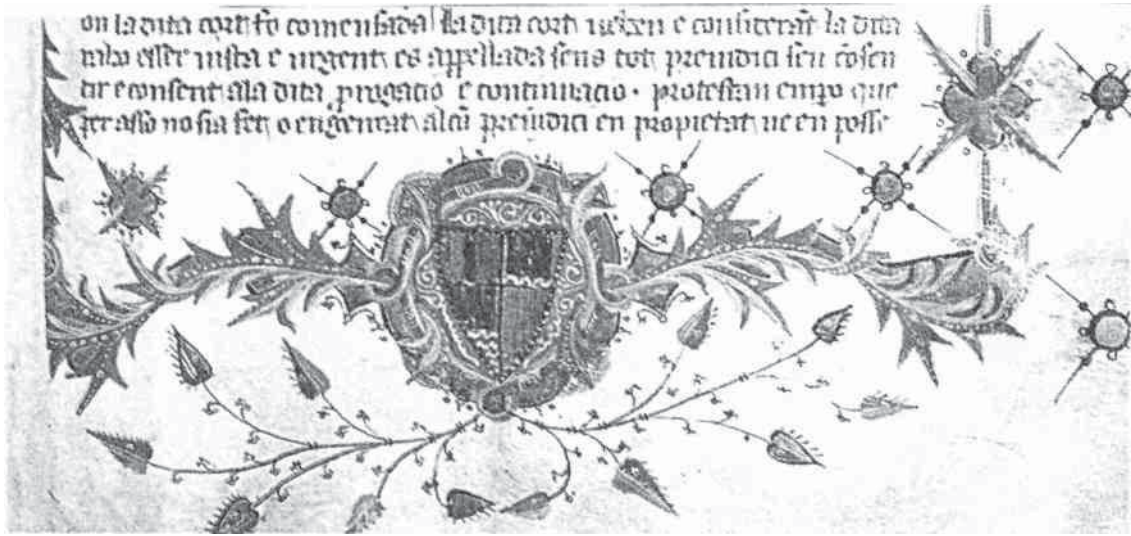 on la dita cort fo comensada la dita cort veben e consiterat la dita
raho esser iusta e urgent es appellada sens tot preiudici seu cōsen
tir e consent a la dita progacio e continuacio · protestan empo que
per asso no sia fet o engenrat alcū preiudici en propietat ne en posse